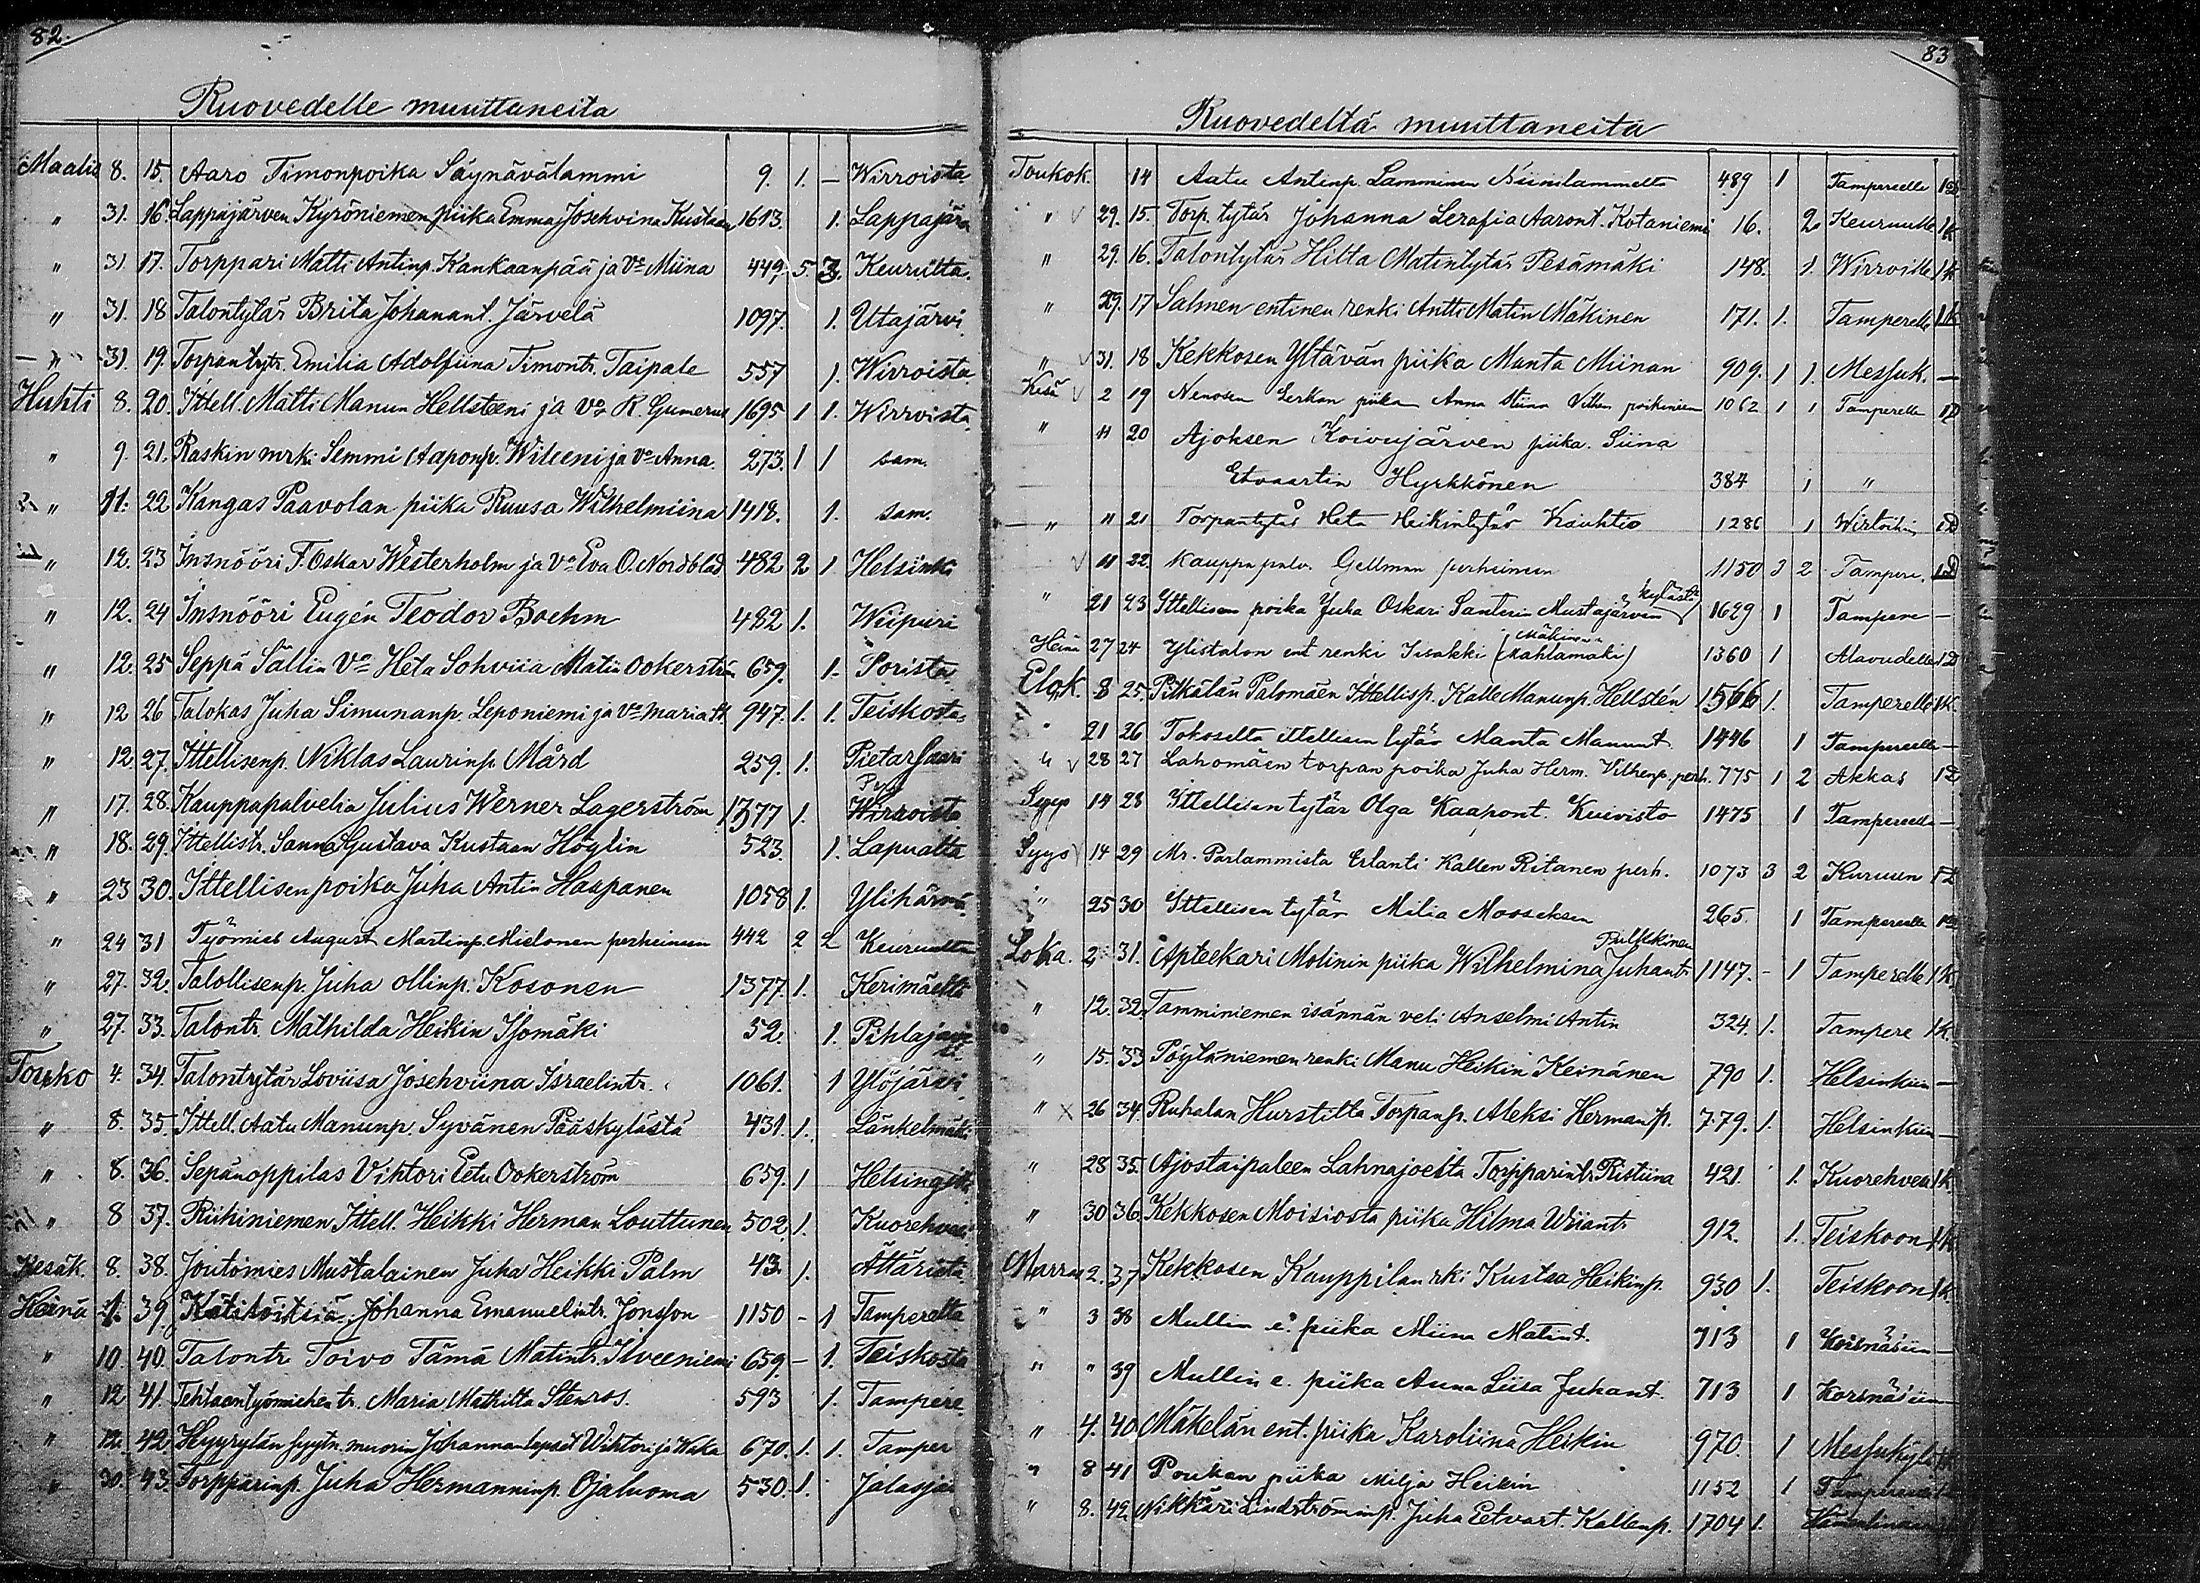 82.
Ruovedelle muuttaneita
Maalis 8. 15. Aaro Timonpoika Säynävälammi 9. 1. — Wirroista
" 31. 16. Lappajärven Kyröniemen piika Emma Josehvina Kustaan 1613. 1. Lappajärv
" 31 17. Torppari Matti Antinp. Kankaanpää ja Vo Miina 449. 5. 3. Keurulta.
" 31. 18 Talontytär Brita Johanant. Järvelä 1097. 1. Utajärvi
" 31. 19. Torpantytr. Emilia Adolfiina Timontr. Taipale 557 1. Wirroista.
Huhti 8. 20. Ittell. Matti Manun Hellsteeni ja Vo K. Gumerus 1695 1 1. Wirroista
" 9. 21. Raskin mrki Semmi Aaponp. Wileeni ja Vo Anna. 273. 1 1 sam.
" 11. 22 Kangas Paavolan piika Ruusa Wilhelmiina 1418. 1. sam.
" 12. 23 Insnööri F. Oskar Westerholm ja Vo Eva O. Nordblad 482 2 1 Helsinki
" 12. 24 Insnööri Eugén Teodor Boehm 482 1. Wiipuri
" 12. 25 Seppä Sällin Vo Heta Sohviia Matin Ookerström 659. 1. Porista
" 12 26 Talokas Juha Simunanp. Leponiemi ja Vo Maria 947. 1. 1. Teiskosta
" 12 27. Ittellisenp. Niklas Laurinp. Mård 259. 1. Pietarsaari
" 17. 28. Kauppapalvelia Julius Werner Lagerström 1377 1. Wirroista
" 18. 29. Ittellistr. Sanna Gustava Kustaan Höglin 523. 1. Lapualta
" 23 30. Ittellisen poika Juha Antin Haapanen 1058 1. Ylihärmä
" 24 31 Työmies August Martinp. Mielonen perheineen 442 2 2 Keuruulta
" 27. 32. Talollisenp. Juha Ollinp. Kosonen 1377. 1. Kerimäeltä
" 27. 33. Talontr. Mathilda Heikin Isomäki 52. 1. Pihlajavesi
Touko 4. 34. Talontytär Loviisa Josehviina Israelintr. 1061. 1 Ylöjärvi
" 8. 35. Ittell. Aatu Manunp. Syvänen Pääskylästä 431. 1. Länkelmäki
" 8. 36. Sepänoppilas Vihtori Eetu Ookerström 659. 1 Helsingist
" 8 37. Riihiniemen Ittell. Heikki Herman Louttunen 502. 1. Kuorehvesi
Kesäk. 8. 38. Joutomies Mustalainen Juha Heikki Palm 43. 1. Ättäristä
Heinä 1. 39. Johanna Emanuelintr. Jonsson 1150 - 1 Tamperelta
" 10. 40. Talontr. Toivo Tämä Matintr. Ilveeniemi 659. - 1. Teiskosta
" 12 41. Tehtaantyömiehentr. Maria Mathilta Stenros. 593 1. Tampere
" 12. 42. Hyyrylän muorin Johannan lapset Wihtori ja Wika 670. 1. 1. Tamper
" 30. 43. Torpparinp. Juha Hermanninp. Ojaluoma 530. 1. Jalasjär
83
Ruovedeltä muuttaneita
Toukok. 14 Aatu Antinp. Lamminen Niinilammelta 489 1 Tampereelle
" 29. 15. Torp. tytär Johanna Serafia Aaront. Kotaniemi 16. 2. Keuruulle 1k
" 29. 16. Talontytär Hilta Matintytär Pesämäki 148. 1. Wirroille 1k
" 29. 17 Salmen entinen renki Antti Matin Mäkinen 171. 1. Tamperelle 1k
" 31. 18 Kekkosen Yltävän piika Manta Miinan 909. 1 1. Messuk. —
Kesä 2 19 Nenosen Eerkon piika Anna Stiina poikineen 1062 1 1 Tamperelle 1D
" 11 20 Ajoksen Koivujärven piika. Siina
Etvaartin Hyrkkönen 384 1 "
" 11 21 Torpantytär Heta Heikintytär Kauhtio 1286 1 Wirtoihin 1D
11 22. Kauppapalv. Gellman perheineen 1150 3 2 Tampere. 1D
" 21 23 Ittellisen poika Juha Oskari Santerin Mustajärven kylästä 1629 1 Tampere —
Heinä 27 24 Ylistalon ent renki Iisakki (Mahlamäki) Mäkinen 1360 1 Alavudelle 1D
Elok. 8 25. Pitkälän Palomäen Ittellisp. Kalle Manunp. Hellstén 1566 1. Tamperelle 1k.
" 21 26 Tokoselta ittellisen tytär Manta Manunt. 1446 1 Tampereelle —
" 28 27 Lahomäen torpan poika Juha Herm. Vilhenp. perh. 775 1 2 Akkas 1D
Syys 14 28 Ittellisen tytär Olga Kaapont. Kuivisto 1475 1 Tampereelle —
Syys 14 29 Mr. Parlammista Erlanti Kallen Riitanen perh. 1073 3 2 Kuruun 1D
" 25 30 Ittellisen tytär Milia Mooseksen 265. 1 Tampereelle
Loka. 2. 31. Apteekari Molinin piika Wilhelmina Juhantr. Pulkkinen 1147. - 1 Tamperelle 1k
" 12. 32. Tamminiemen isännän veli Anselmi Antin 324. 1. Tampere 1k.
" 15. 33 Pöytäniemen renki Manu Heikin Keinänen 790 1. Helsinkiin —
" x 26 34. Ruhalan Hurstilta Torpanp. Aleksi Hermanp. 779. 1. Helsinkiin —
" 28 35. Ajostaipaleen Lahnajoelta Torpparintr. Ristiina 421. 1. Kuorehvea 1k.
" 30 36. Kekkosen Moisiosta piika Hilma Wiiant. 912. 1. Teiskoon 1k
Marras 2. 37 Kekkosen Kauppilan rki Kustaa Heikinp. 930 1. Teiskoon 1k.
" 3 38 Mullin e. piika Miina Matint. 713 1 Korsnäsiin —
" " 39 Mullin e. piika Anna Liisa Juhant. 713 1 Korsnäsiin —
" 4. 40. Mäkelän ent. piika Karoliina Heikin 970. 1 Messukylä 1k
" 8 41 Poukan piika Milja Heikin 1152 1 Tampereelle
" 8. 42. Nikkäri Lindströminp. Juha Eetvart. Kallenp. 1704 1. Hämeenlinnaan